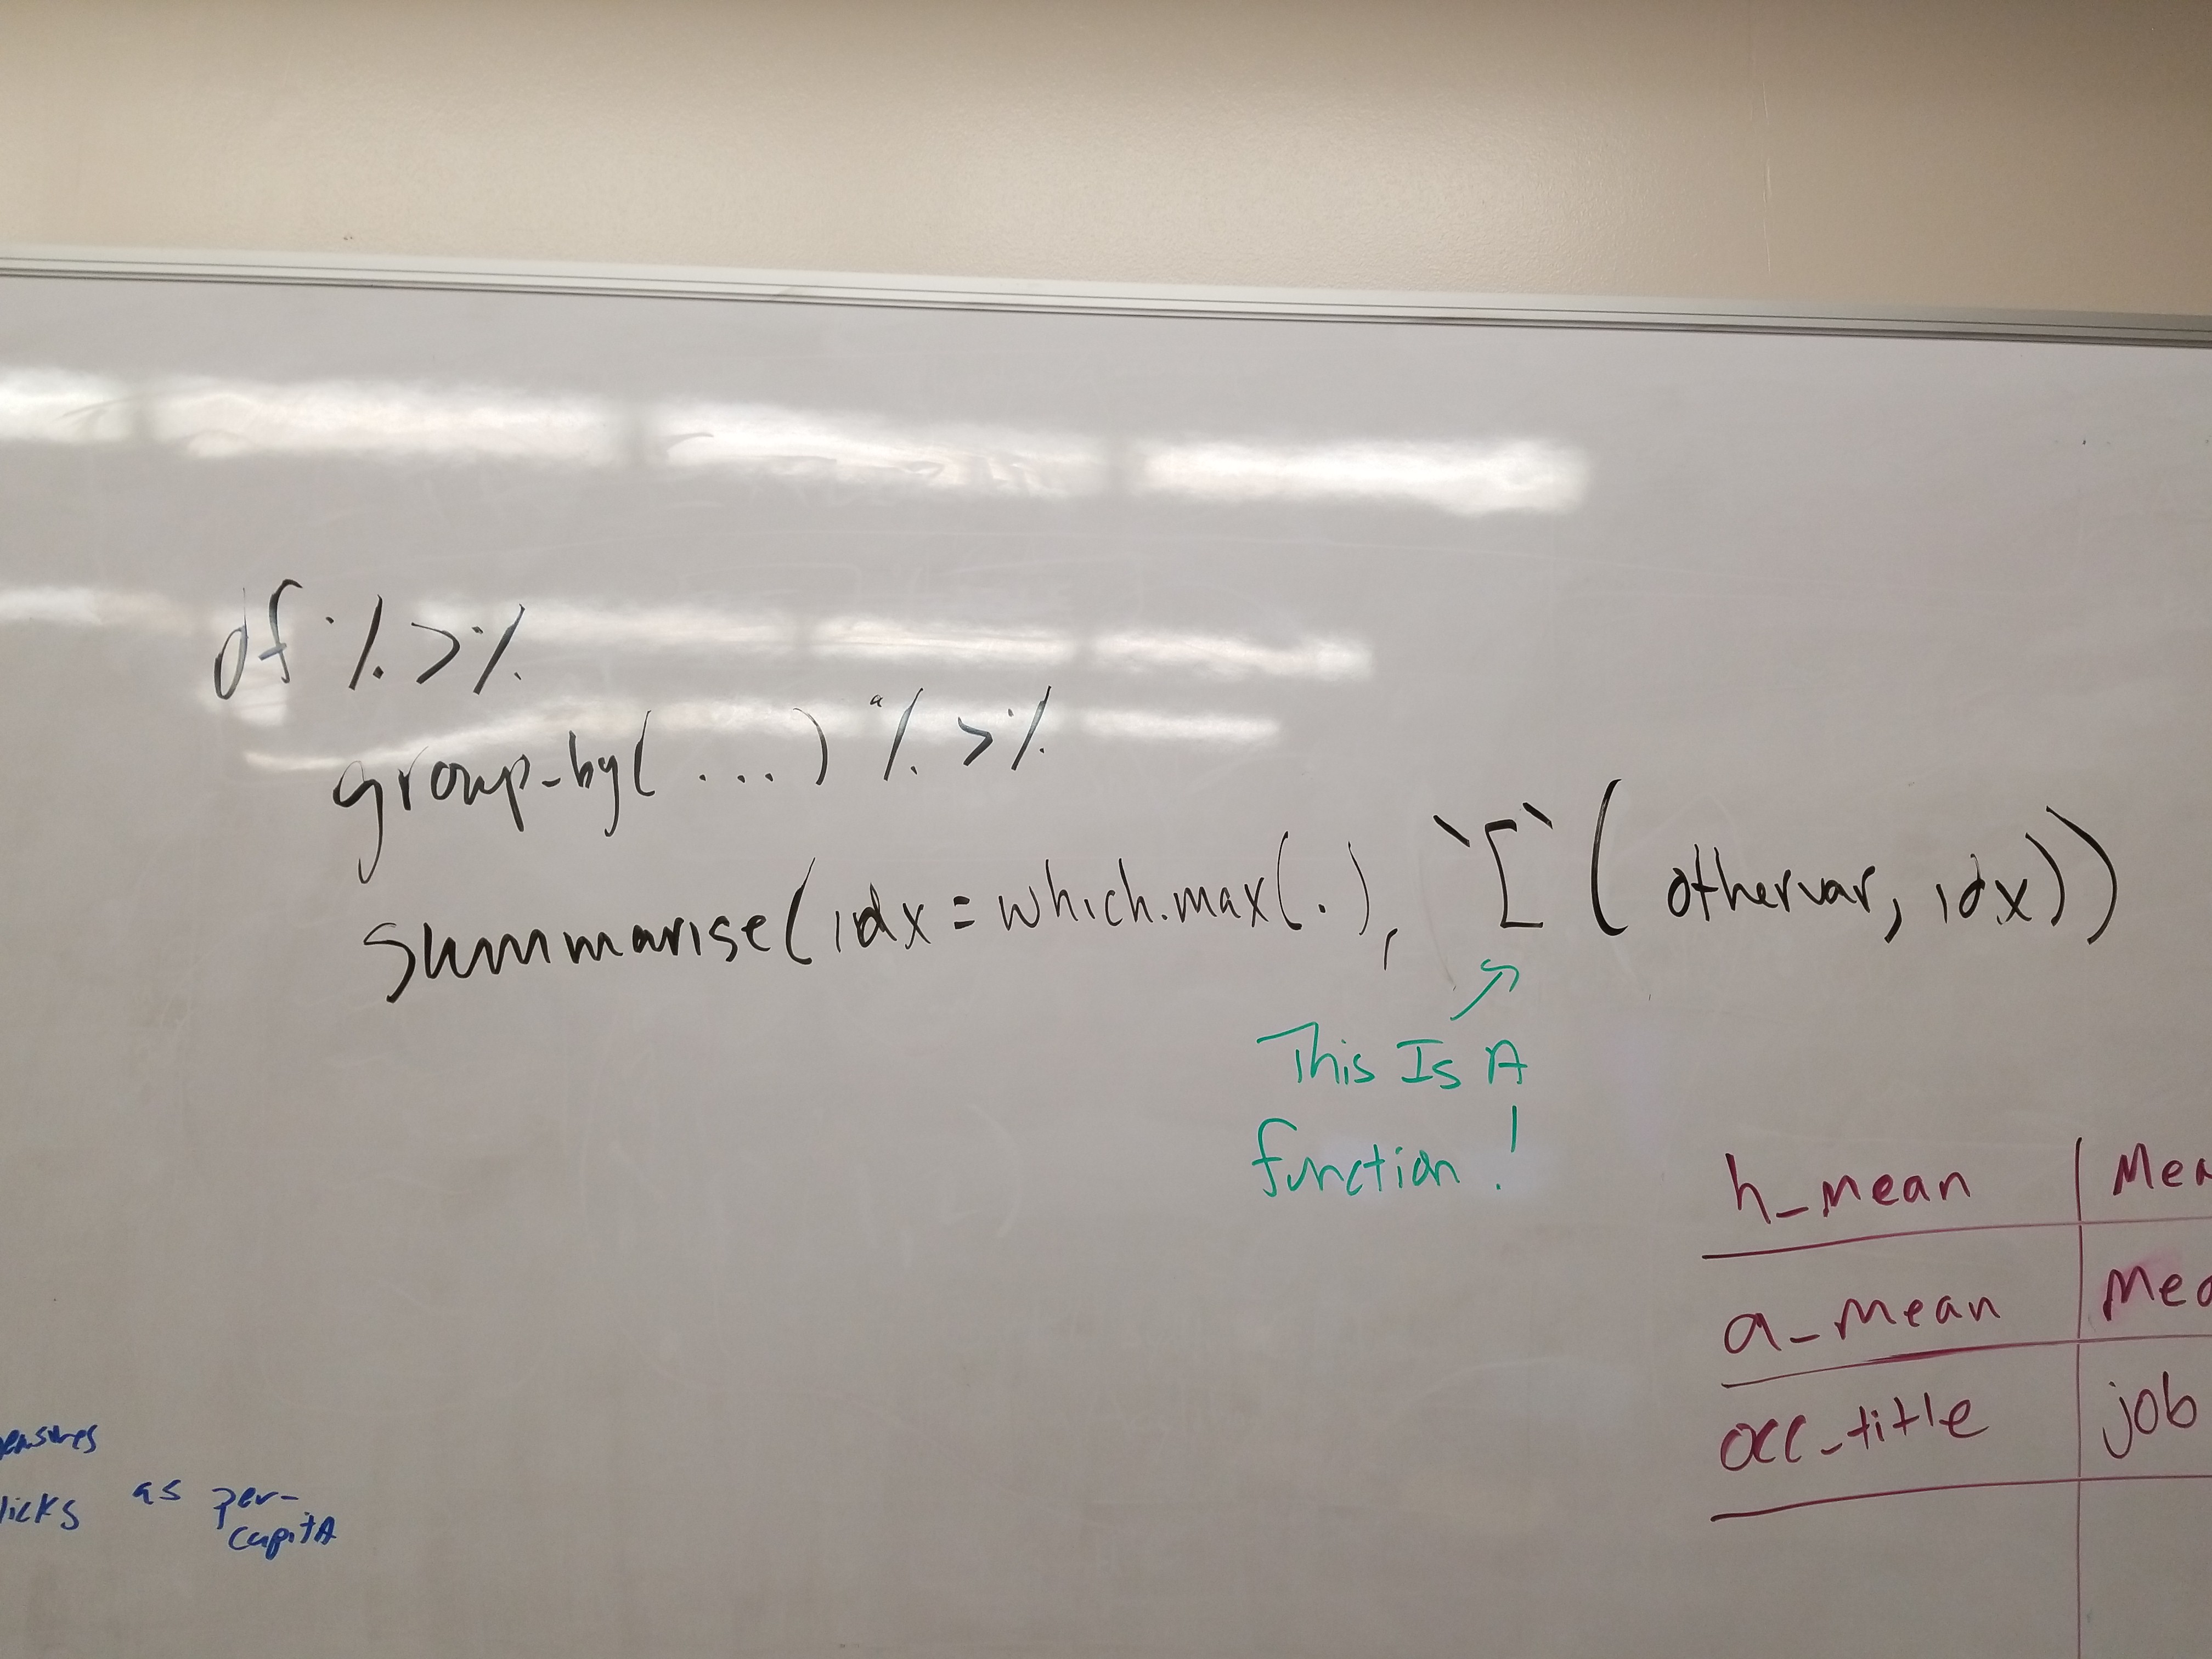 df %>%
group_by(...) %>%
summarise(idx = which.max(.), `[`(othervar, idx))
This Is A
function!
h_mean
a_mean
occ_title | job
as per-
capitA